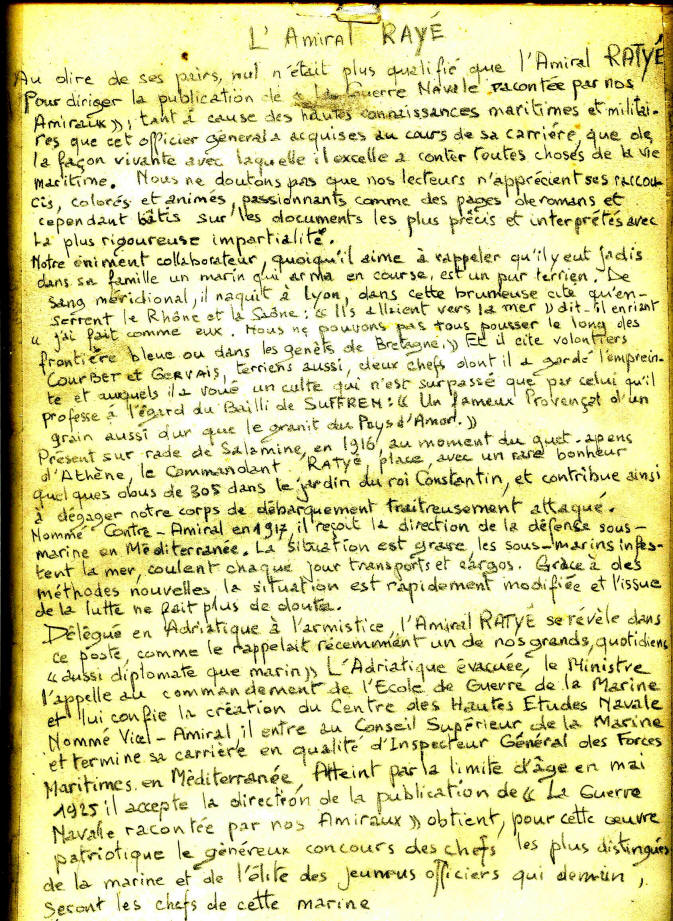 L'Amiral RAYÉ
Au dire de ses pairs, nul n'était plus qualifié que l'Amiral RATYÉ
Pour diriger la publication de « La Guerre Navale racontée par nos
Amiraux », tant à cause des hautes connaissances maritimes et militai-
res que cet officier général a acquises au cours de sa carrière, que de
la façon vivante avec laquelle il excelle a conter toutes choses de la vie
maritime. Nous ne doutons pas que nos lecteurs n'apprécient ses raccou-
cis, colorés et animés, passionnants comme des pages de romans et
cependant bâtis sur les documents les plus précis et interprétés avec
la plus rigoureuse impartialité.
Notre éniment collaborateur, quoiqu'il aime à rappeler qu'il y eut jadis
dans sa famille un marin qui arma en course, est un pur terrien. De
sang méridional, il naquit à Lyon, dans cette brumeuse cité qu'en-
serrent le Rhône et la Saône : « Ils allaient vers la mer » dit-il enriant
« j'ai fait comme eux. Nous ne pouvons pas tous pousser le long des
frontière bleue ou dans les genêts de Bretagne. » Et il cite volontiers
COURBET et GERVAIS, terriens aussi, deux chefs dont il a gardé l'emprein-
te et auxquels il a voué un culte qui n'est surpassé que par celui qu'il
professe à l'égard du Bailli de SUFFREN : « Un fameux Provençal d'un
grain aussi dur que le granit du Pays d'Amor. »
Présent sur rade de Salamine, en 1916 au moment du guet-apens
d'Athène, le Commandant RATYÉ place avec un rare bonheur
quelques obus de 305 dans le jardin du roi Constantin, et contribue ainsi
à dégager notre corps de débarquement traitreusement attaqué.
Nommé Contre-Amiral en 1917, il reçoit la direction de la défense sous-
marine en Méditerranée. La situation est grave, les sous-marins infes-
tent la mer, coulent chaque jour transports et cargos. Grâce à des
méthodes nouvelles la situation est rapidement modifiée et l'issue
de la lutte ne fait plus de doute.
Délégué en Adriatique à l'armistice, l'Amiral RATYÉ se révèle dans
ce poste, comme le rappelait récemment un de nos grands, quotidiens
« aussi diplomate que marin » L'Adriatique évacuée, le Ministre
l'appelle au commandement de l'Ecole de Guerre de la Marine
et lui confie la création du Centre des Hautes Etudes Navale
Nommé Vice-Amiral, il entre au Conseil Supérieur de la Marine
et termine sa carrière en qualité d'Inspecteur Général des Forces
Maritimes en Méditerranée, Atteint par la limite d'âge en mai
1925 il accepte la direction de la publication de « La Guerre
Navale racontée par nos Amiraux » obtient, pour cette œuvre
patriotique le généreux concours des chefs les plus distingués
de la marine et de l'élite des jeunus officiers qui demain,
seront les chefs de cette marine